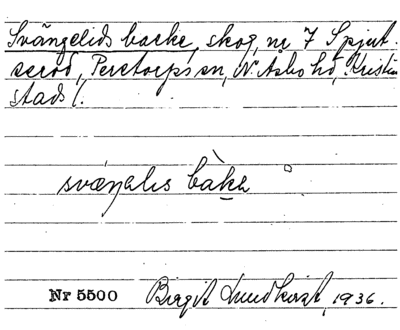 Svängelids backe, skog, nr 7 Spjut-
seröd, Perstorps sn, N. Åsbo hd, Kristian
stads l.
svæŋalıs bàka
Nr 5500 Birgit Lundkvist, 1936.